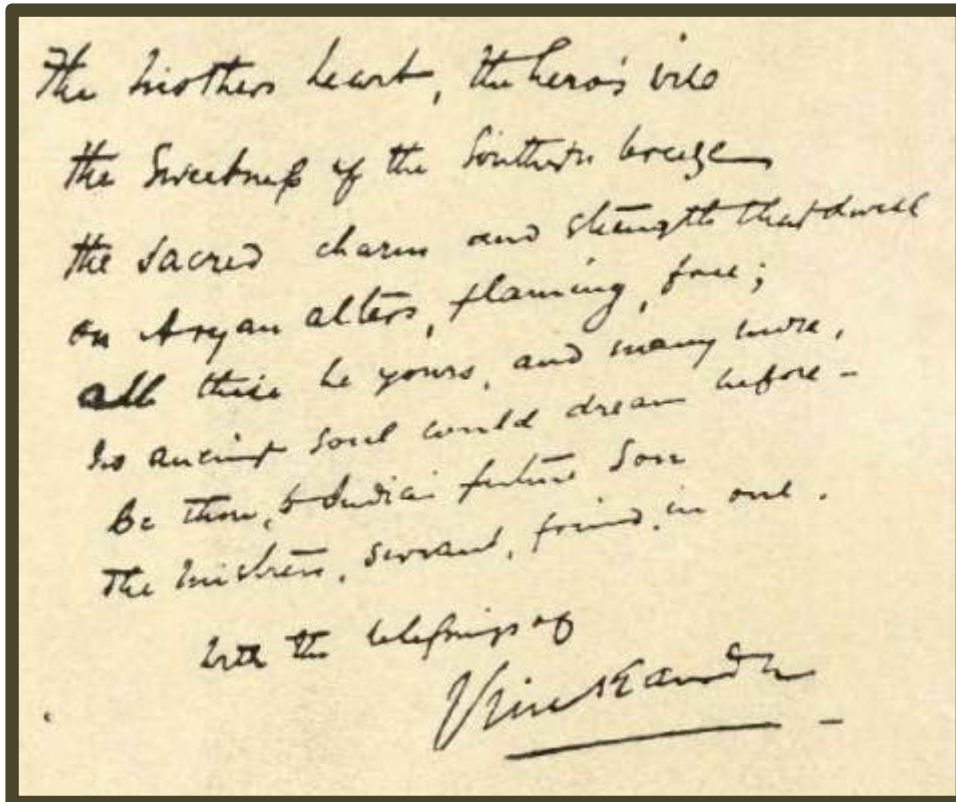 The mothers heart, the hero's will
the Sweetness of the Southern breeze
the sacred charm and strength that dwell
on Aryan alters, flaming, free;
all these be yours, and many more,
No ancient soul could dream before –
Be thou, to India's future Son
The mistress, servant, friend, in one.
With the blessings of
Vivekananda